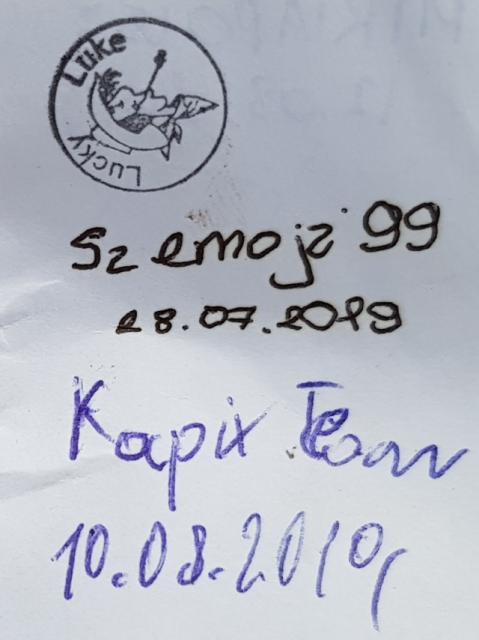 Lucky Luke
Szemojz' 99
28.07.2019
Kapix Team
10.08.2019